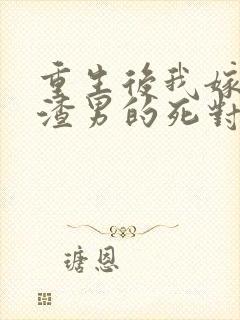 重生後我嫁
渣男的死對
瑭恩